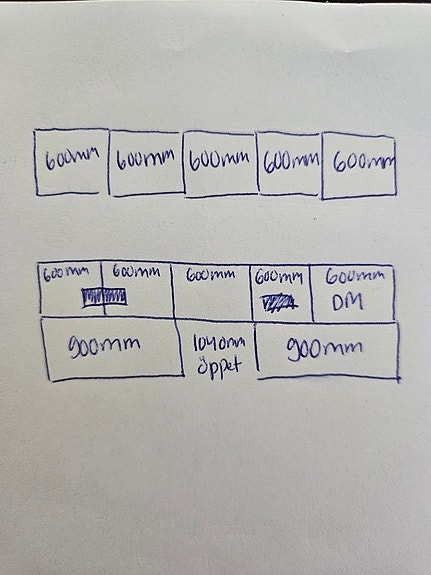 600mm 600mm 600mm 600mm 600mm
600mm 600mm 600mm 600mm 600mm
DM
900mm 1040mm 900mm
öppet